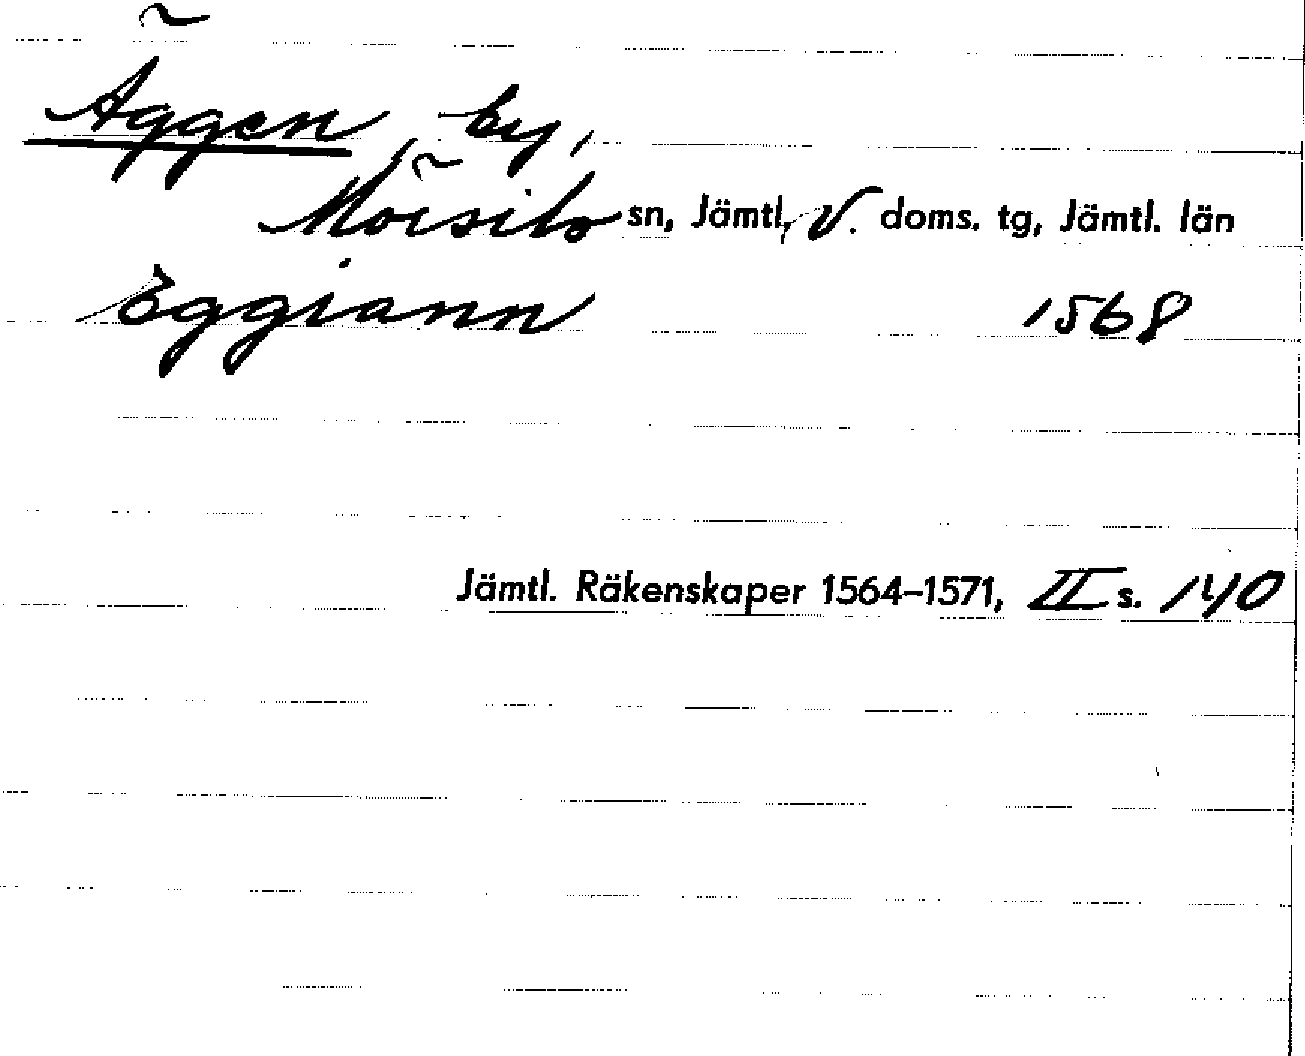 Äggen, by,
Mörsils sn, Jämtl, V. doms. tg, Jämtl. län
Eggiann 1568
Jämtl. Räkenskaper 1564–1571, II s. 140